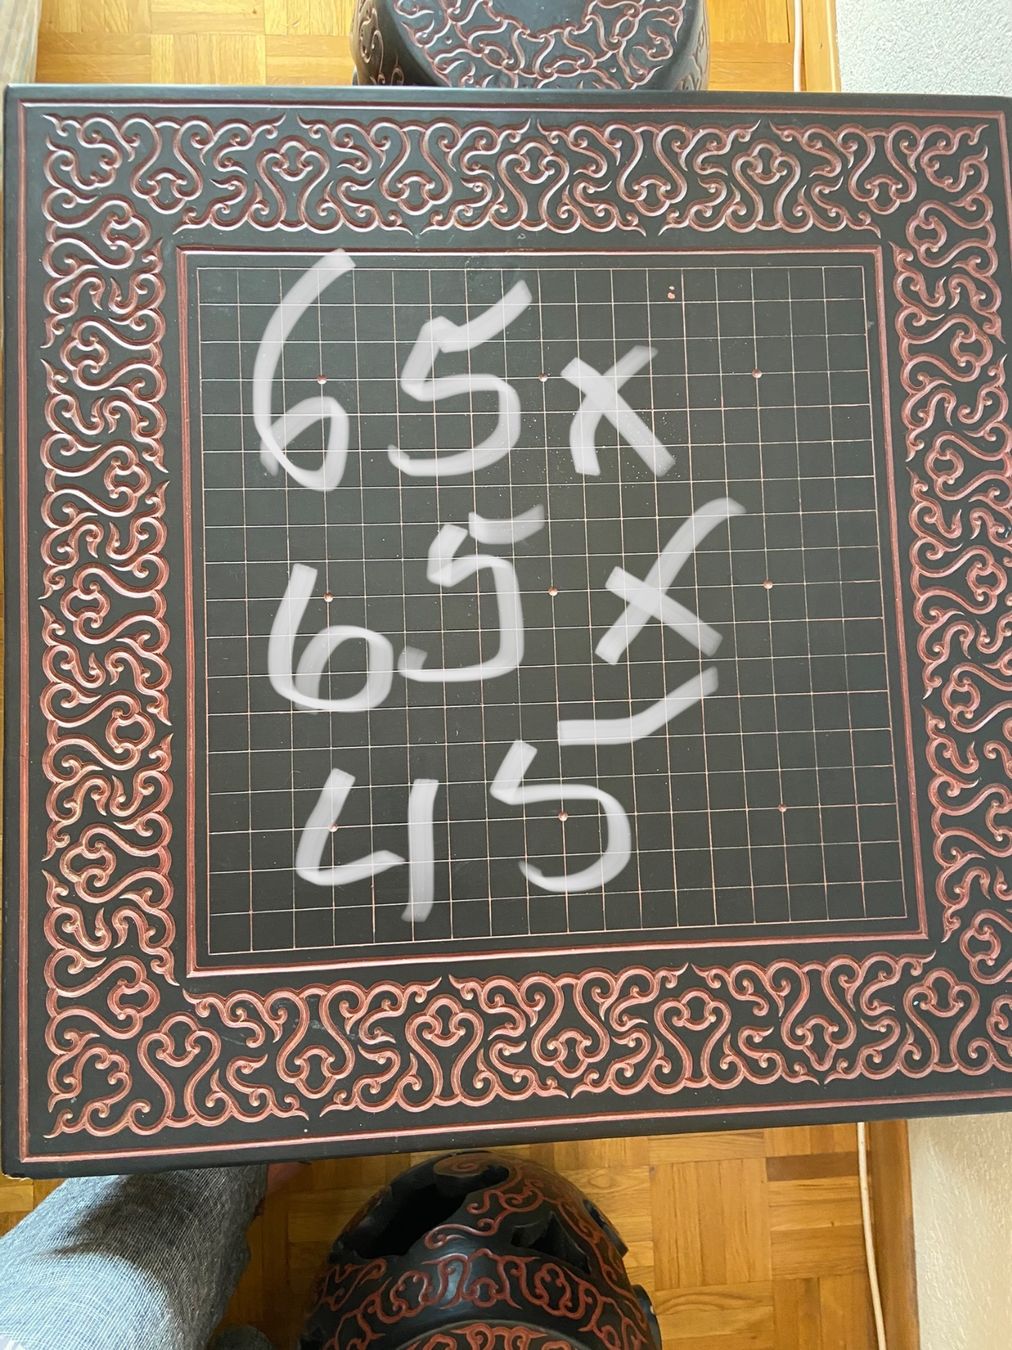 65x
65x
45